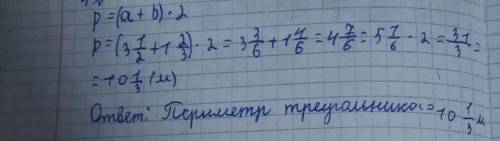 p=(a+b)·2
p=(3 1/2+1 2/3)·2=3 3/6+1 4/6=4 7/6=5 1/6·2=31/3=
=10 1/3 (м)
Ответ: Периметр треугольника=10 1/3 м